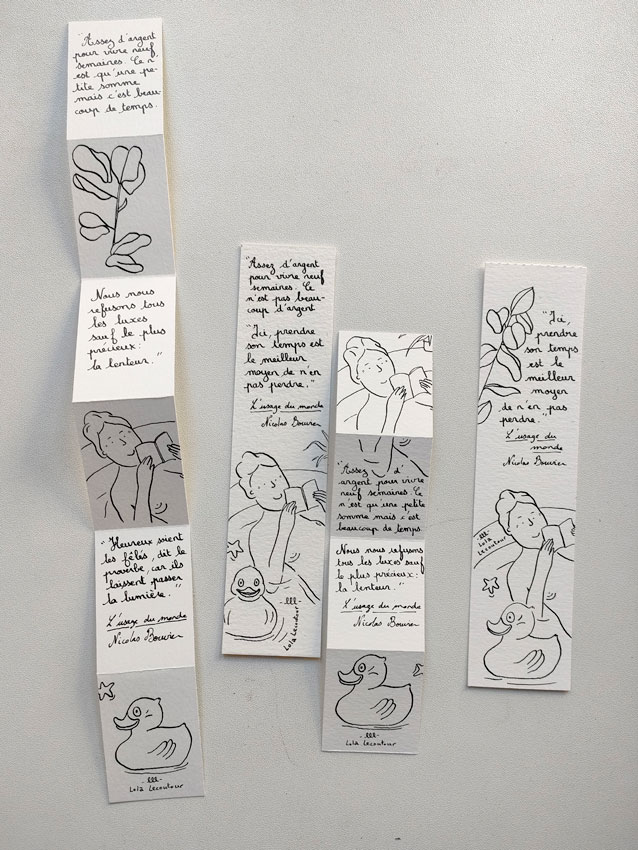 "Assez d'argent
pour vivre neuf
semaines. Ce n'
est qu'une pe-
tite somme
mais c'est beau-
coup de temps.
Nous nous
refusons tous
les luxes
sauf le plus
précieux:
la lenteur."
"Heureux soient
les fêlés, dit le
proverbe, car ils
laissent passer
la lumière."
L'usage du monde
Nicolas Bouvier
-lll-
Lola Lecoutour
"Assez d'argent
pour vivre neuf
semaines. Ce
n'est pas beau-
coup d'argent
"Ici, prendre
son temps est
le meilleur
moyen de n'en
pas perdre."
L'usage du monde
Nicolas Bouvier
-lll-
Lola Lecoutour
"Assez d'
argent pour vivre
neuf semaines. Ce
n'est qu'une petite
somme mais c'est
beaucoup de temps.
Nous nous refusons
tous les luxes sauf
le plus précieux:
la lenteur."
L'usage du monde
Nicolas Bouvier
-lll-
Lola Lecoutour
"Ici,
prendre
son temps
est le
meilleur
moyen
de n'en pas
perdre."
L'usage du
monde
Nicolas Bouvier
-lll-
Lola
Lecoutour